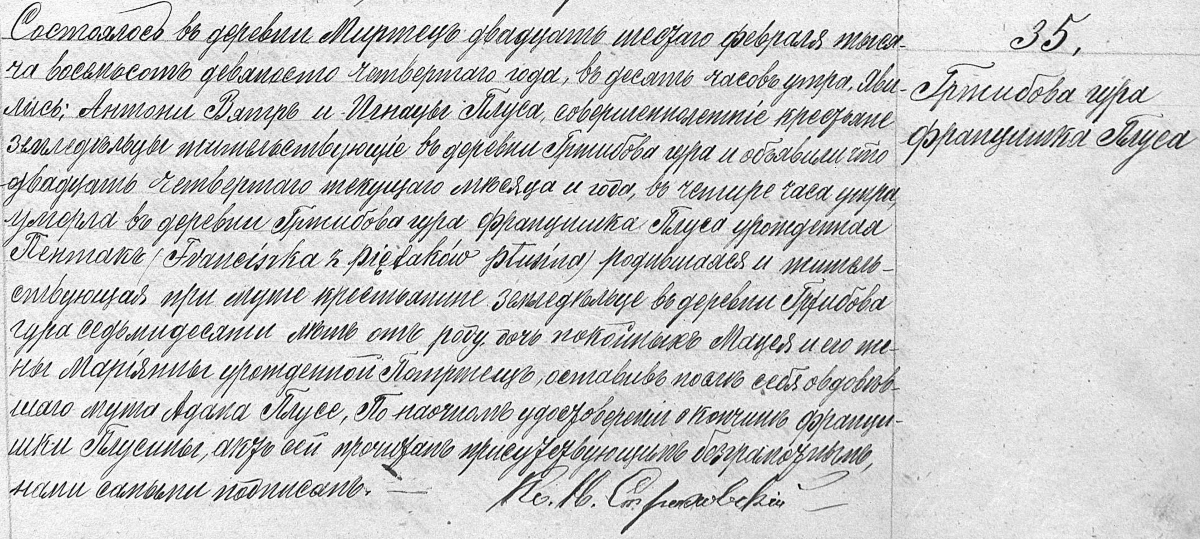 Состоялось въ деревни Миртецъ двадцать шестаго февраля тыся-
ча восемьсотъ девяносто четвертаго года, въ десять часовъ утра. Яви-
лись: Антони Вятръ и Игнацы Плуса, совершеннолетніе крестьяне
земледѣльцы жительствующіе въ деревни Гржибова гура и объявили что
двадцать четвертаго текущаго мѣсяца и года, въ четыре часа утра,
умерла въ деревни Гржибова гура Францишка Плуса урожденная
Пентакъ (Franciszka z Piętaków Płusina) родившаяся и житель-
ствующая при муже крестьянине земледѣльце въ деревни Гржибова
гура седьмидесяти лѣтъ отъ роду, дочь покойныхъ Мацея и его же-
ны Маріянны урожденной, оставивъ послѣ себя овдовѣв-
шаго мужа Адама Плусе, По наочномъ удостоверенiи о кончинѣ Францi-
шки Плусины, актъ сей прочитанъ присутствующимъ безграмотнымъ,
нами самыми подписанъ. —
Кс. М.
35.
Гржибова гура
Францишка Плуса